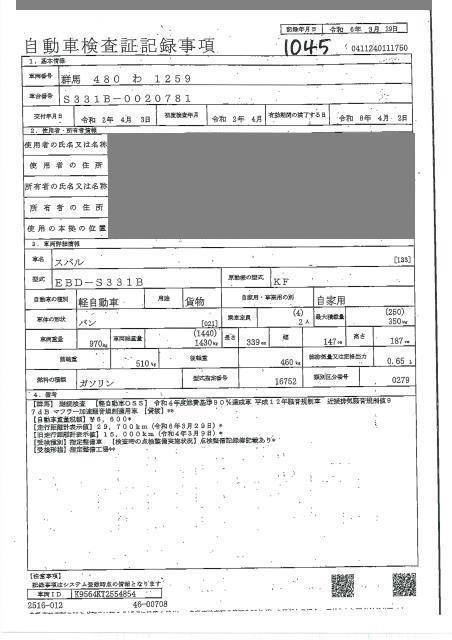 記録年月日 令和 6年 3月 29日
自動車検査証記録事項 1045 0411240111750
1．基本情報
車両番号 群馬 480 わ 1259
車台番号 S331B-0020781
交付年月日 令和 2年 4月 3日 初度検査年月 令和 2年 4月 有効期間の満了する日 令和 8年 4月 2日
2．使用者・所有者情報
使用者の氏名又は名称
使用者の住所
所有者の氏名又は名称
所有者の住所
使用の本拠の位置
3．車両詳細情報
車名 スバル [135]
型式 EBD-S331B 原動機の型式 KF
自動車の種別 軽自動車 用途 貨物 自家用・事業用の別 自家用
車体の形状 バン [021] 乗車定員 (4) 2人 最大積載量 (250) 350kg
車両重量 970kg 車両総重量 (1440) 1430kg 長さ 339cm 幅 147cm 高さ 187cm
前軸重 510kg 後軸重 460kg 総排気量又は定格出力 0.65 L
燃料の種類 ガソリン 型式指定番号 16752 類別区分番号 0279
4．備考
[群馬] 継続検査 [軽自動車OSS] 令和4年度燃費基準90%達成車 平成12年騒音規制車 近接排気騒音規制値9
7dB マフラー加速騒音規制適用車 [貨積]**
[自動車重量税額] ¥6,600*
[走行距離計表示値] 29,700km (令和6年3月29日)
[旧走行距離計表示値] 15,000km (令和4年3月9日)*
[受検種別] 指定整備車 [検査時の点検整備実施状況] 点検整備記録簿記載あり*
[受検形態] 指定整備工場**
[注意事項]
記録事項はシステム登録時点の情報となります
車両ID K9564KT2554854
2516-012 46-00708